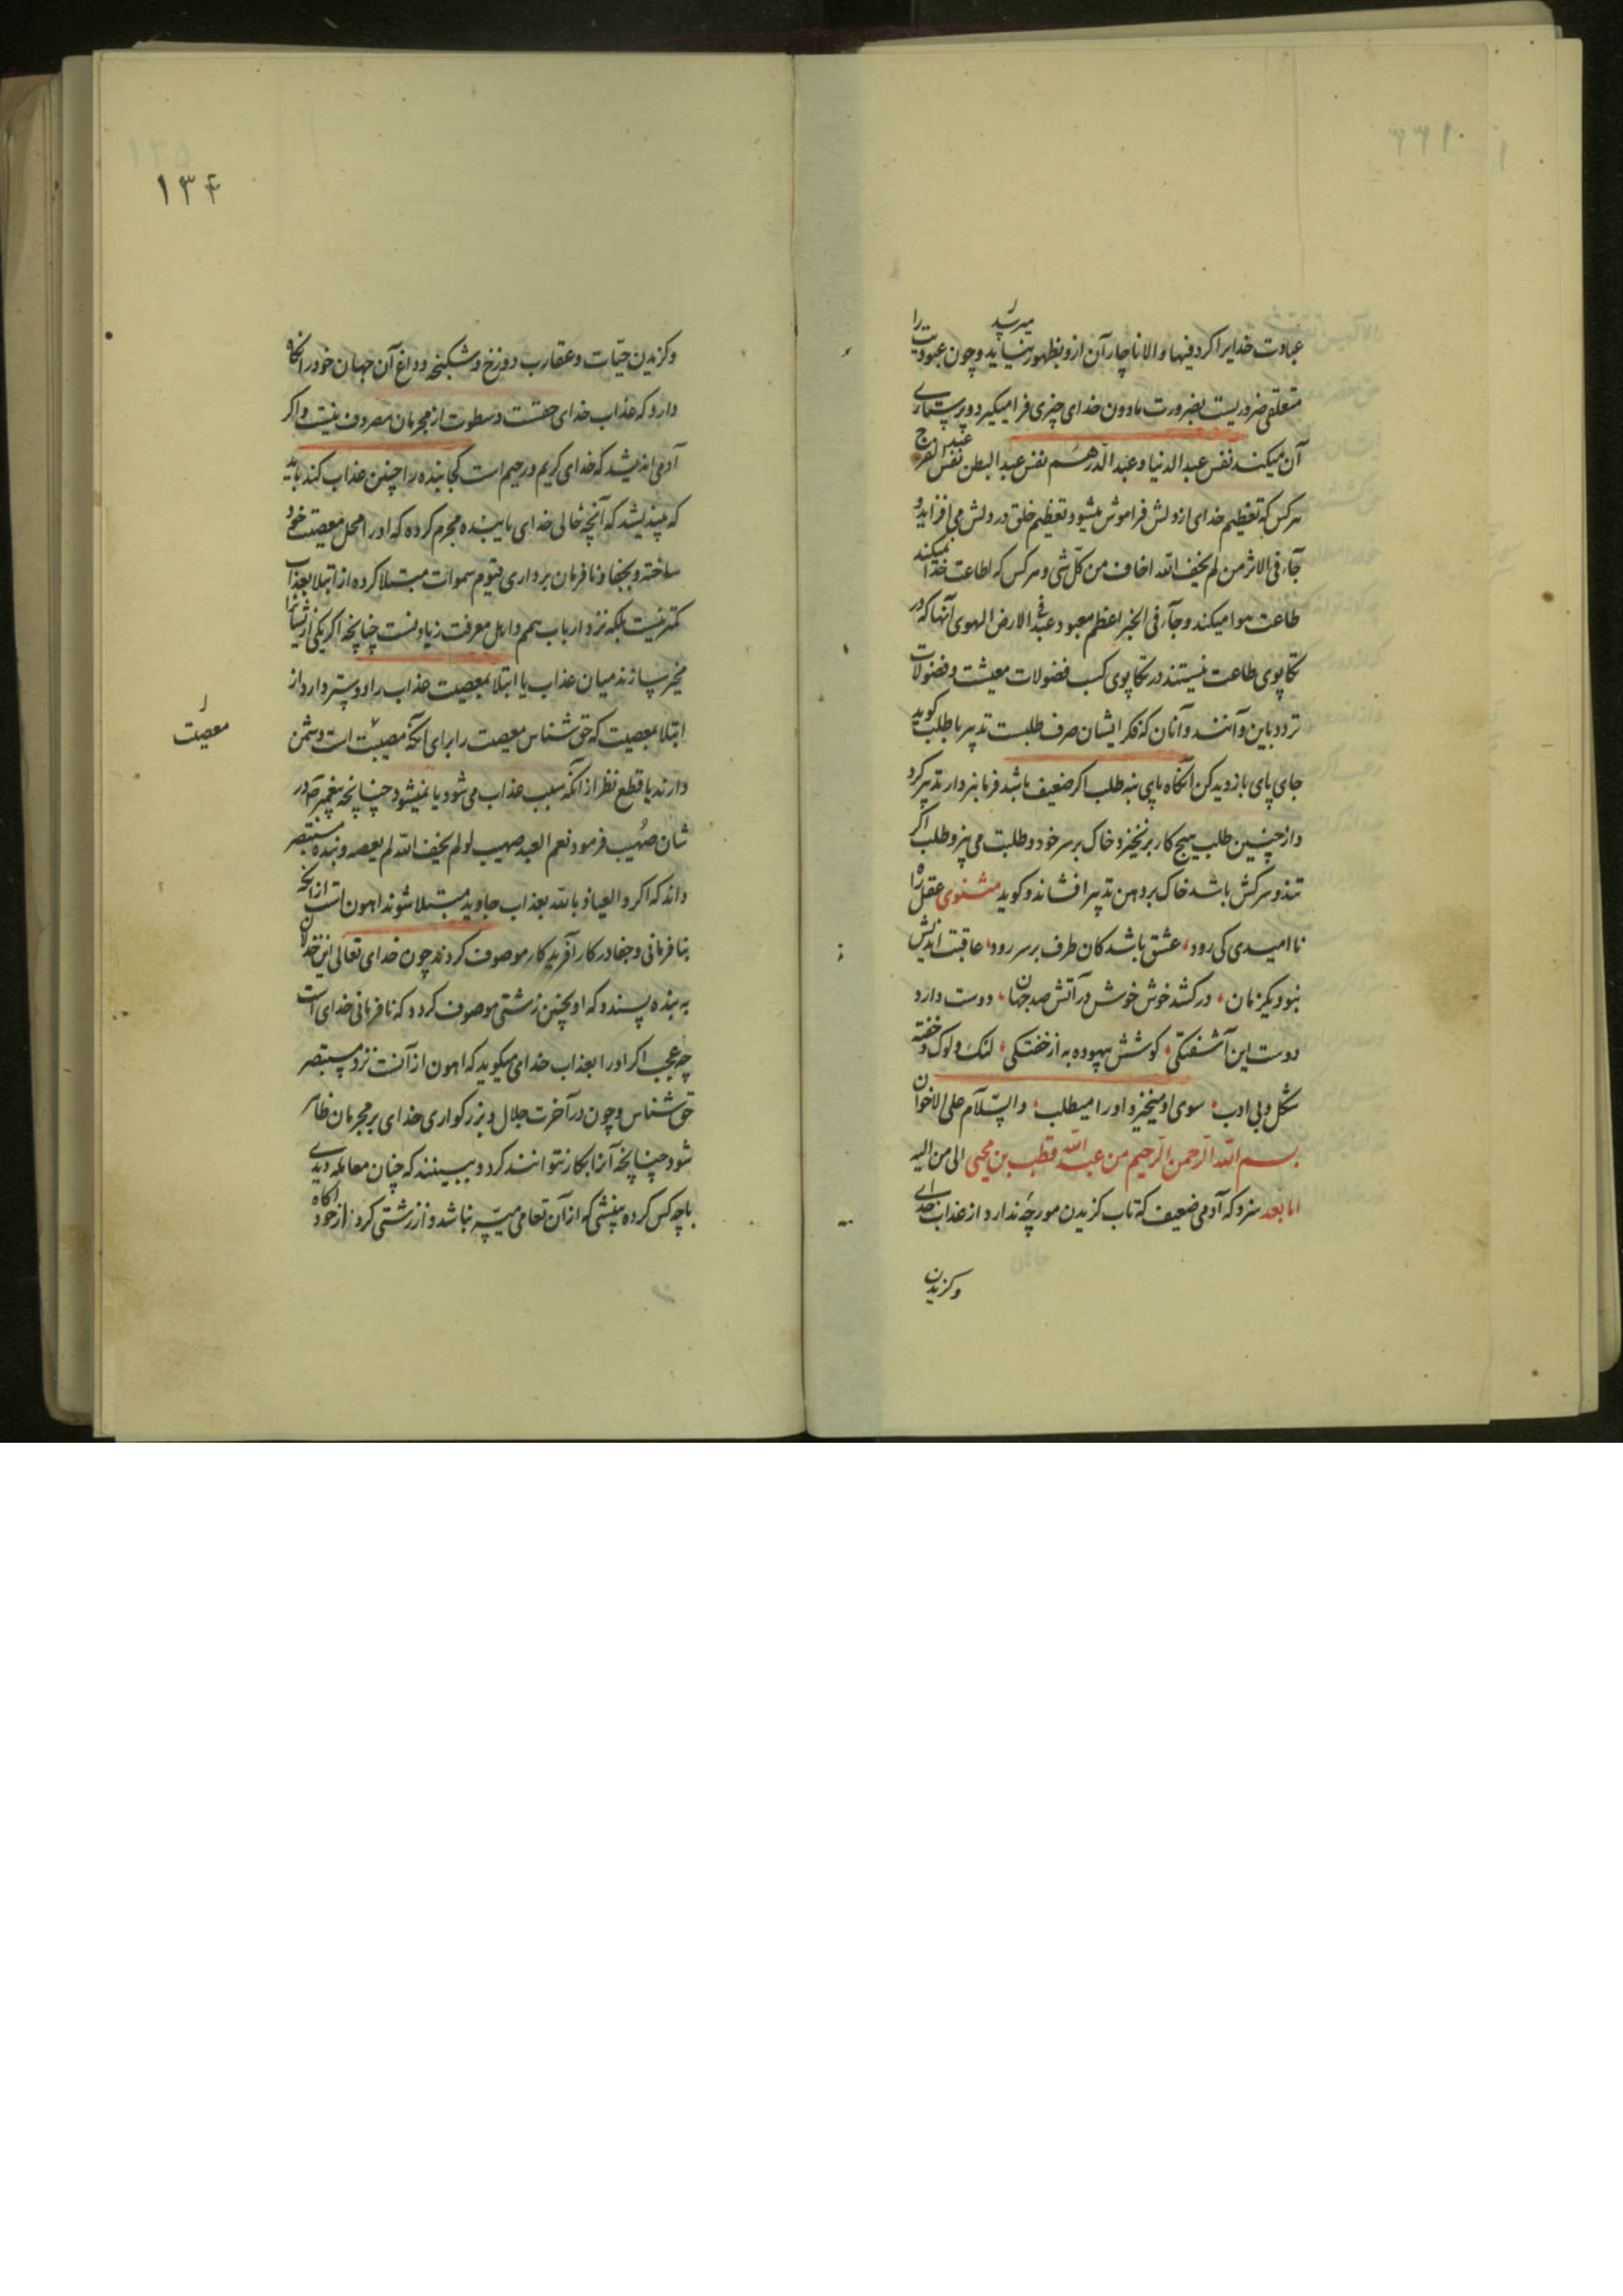 عبادت خدایرا کرد فبها والا ناچار آن ازو بظهور نیاید و چون عبودیت را
میرسد
متعلقی ضروریست بضرورت مادون خدای چیزی فرا میکیرد و پرستاری
آن میکند نفس عبد الدنیا و عبد الدرهم نفس عبد البطن نفس عبد الفرج
هر کس که تعظیم خدای از دلش فراموش میشود تعظیم خلق در دلش می افزاید و
جآء فی الاثر من لم یخف الله اخاف من کل شی و هر کس که اطاعت خدا نمیکند
طاعت هوا میکند و جآء فی الخبر اعظم معبود عبد فی الارض الهوی آنها که در
تکاپوی طاعت نیستند در تکاپوی کسب فضولات معیشت و فضولات
تردد باین و آنند و آنان که فکر ایشان صرف طلبست تدبیر با طلب کوید
جای پای بازدید کن آنکاه پای بنه طلب اکر ضعیف باشد فرمانبردار تدبیر کرد
و از چنین طلب هیچ کار برنخیزد و خاک بر سر خود و طلبت می بیزد و طلب اکر
تند و سرکش باشد خاک بر دهن تدبیر افشاند و کوید مثنوی عقل راه
نا امیدی کی رود، عشق باشد کان طرف بر سر رود، عاقبت اندیش
نبود یکزمان، در کشد خوش خوش در آتش صد جهان، دوست دارد
دوست این آشفتکی، کوشش بیهوده به از خفتکی، لنک و لوک و خفته
شکل و بی ادب، سوی او میخیز و اورا میطلب، والسّلام علی الاخوان
بسم الله الرّحمن الرّحیم من عبد الله قطب بن محیی الی من الیه
اما بعد سزد که آدمی ضعیف که تاب کزیدن مورچه ندارد از عذاب خدای
وکزیدن
۱۳۴
وکزیدن حیّات و عقارب دوزخ و شکنجه و داغ آن جهان خود را نکاه
دارد که عذاب خدای حقست و سطوت از مجرمان مصروف نیست و اکر
آدمی اندیشد که خدای کریم و رحیم است کجا بنده را چنین عذاب کند باید
که بیندیشد که آنچه حالی خدای با بنده مجرم کرده که او را محل معصیت خود
ساخته و بجفا و نافرمان برداری قیوم سموات مبتلا کرده از ابتلا بعذاب
کمتر نیست بلکه نزد ارباب همم و اهل معرفت زیادتست چنانچه اکر یکی از ایشانرا
مخیر سازند میان عذاب یا ابتلا بمعصیت عذاب را دوستر دارد از
ابتلا بمعصیت که حق شناس معصیت را برای آنکه مصیبت است دشمن
معصیت
دارند با قطع نظر از آنکه سبب عذاب می شود یا نمیشود چنانچه پیغمبر ص در
شان صُهیب فرمود نعم العبد صهیب لو لم یخف الله لم یعصه و بنده مستبصر
داند که اکر والعیاذ بالله بعذاب جاوید مبتلا شوند اهون است از آنکه
بنافرمانی و جفا در کار آفریدکار موصوف کردند چون خدای تعالی این خذلان
به بنده پسندد که او بچنین زشتی موصوف کردد که نافرمانی خدای است
چه عجب اکر او را بعذاب خدا می میکوید که اهون از آنست نزد مستبصر
حق شناس و چون در آخرت جلال و بزرکواری خدای بر مجرمان ظاهر
شود چنانچه آنرا انکار نتوانند کرد و ببینند که چنان معامله دیدی
با چه کس کرده بینشی که از آن تعامی میسّر نباشد و از زشتی کرد از خود آکاه